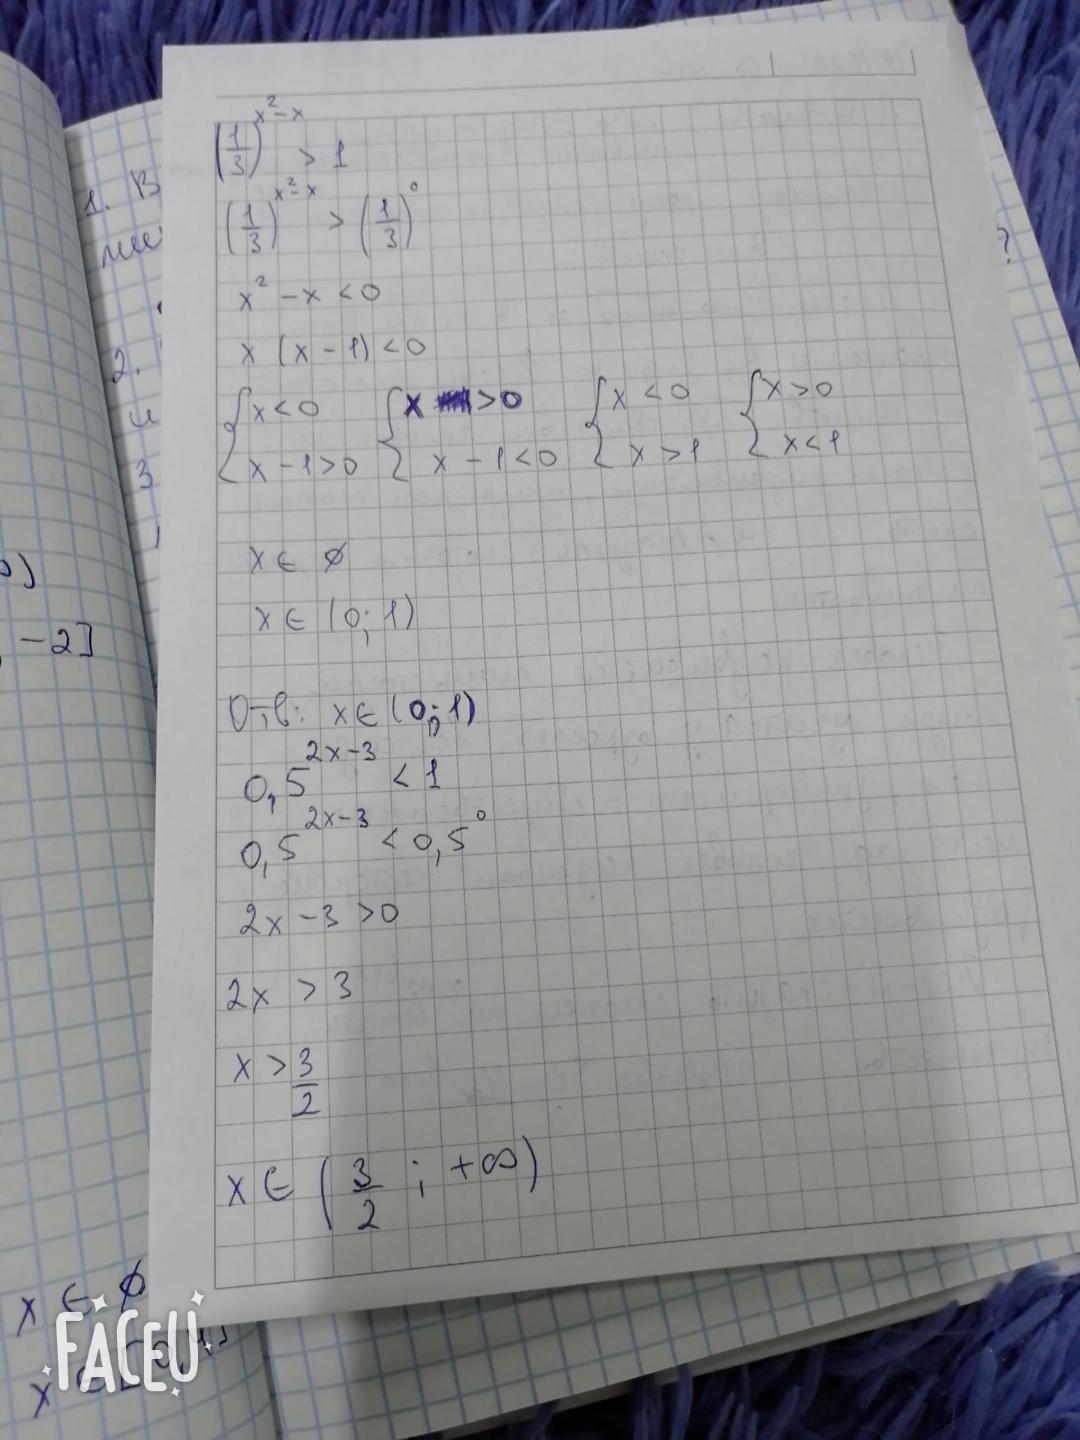 (1/3)^(x²-x) > 1
(1/3)^(x²-x) > (1/3)^0
x² - x < 0
x (x - 1) < 0
{x < 0 {x > 0 {x < 0 {x > 0
x - 1 > 0 x - 1 < 0 x > 1 x < 1
x ∈ ∅
x ∈ (0; 1)
Отв: x ∈ (0; 1)
0,5^(2x-3) < 1
0,5^(2x-3) < 0,5^0
2x - 3 > 0
2x > 3
x > 3/2
x ∈ (3/2 ; +∞)
1. В
2.
и
3
-2]
?
x ∈ ∅
x
FACEU